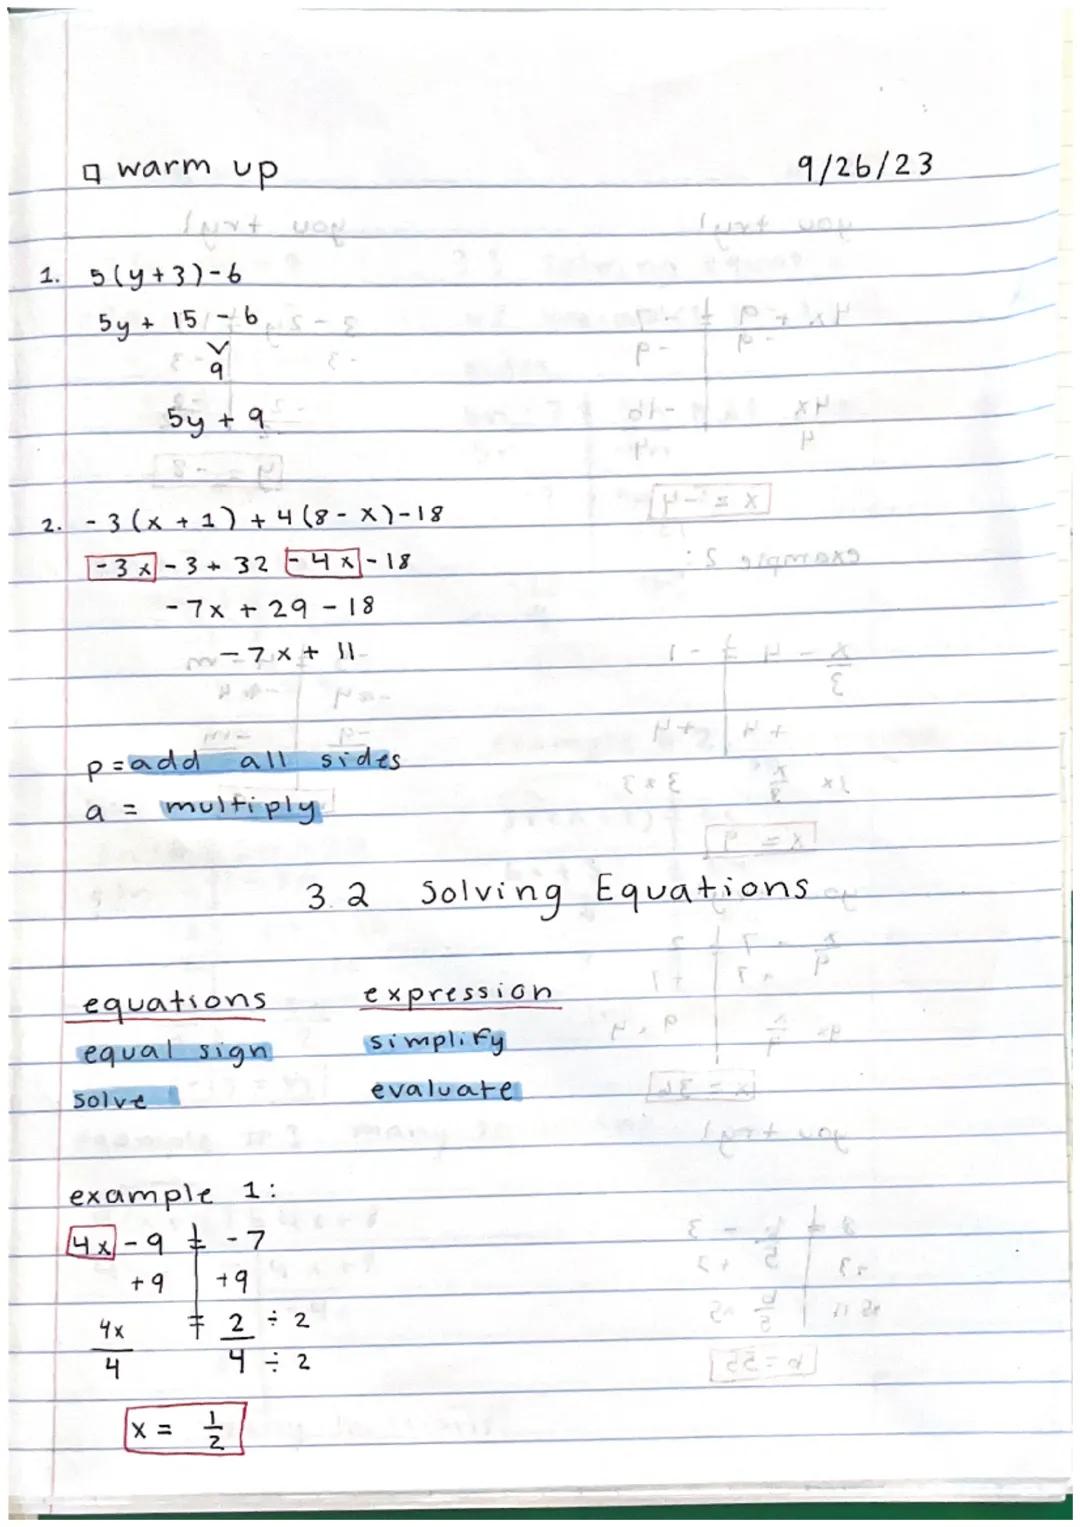 □ warm up 9/26/23
1. 5(y+3)-6
5y + 15 - 6
9
5y + 9
2. -3(x + 1) + 4(8 - x)-18
-3x - 3 + 32 - 4x - 18
-7x + 29 - 18
-7x + 11
p = add all sides
a = multiply
3.2 Solving Equations
equations expression
equal sign simplify
solve evaluate
example 1:
4x - 9 = -7
+9 +9
4x = 2 ÷ 2
4 4 ÷ 2
x = 1/2